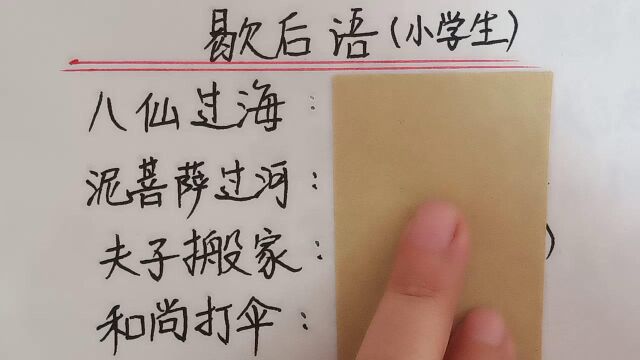 歇后语(小学生)
八仙过海：
泥菩萨过河：
夫子搬家：
和尚打伞：